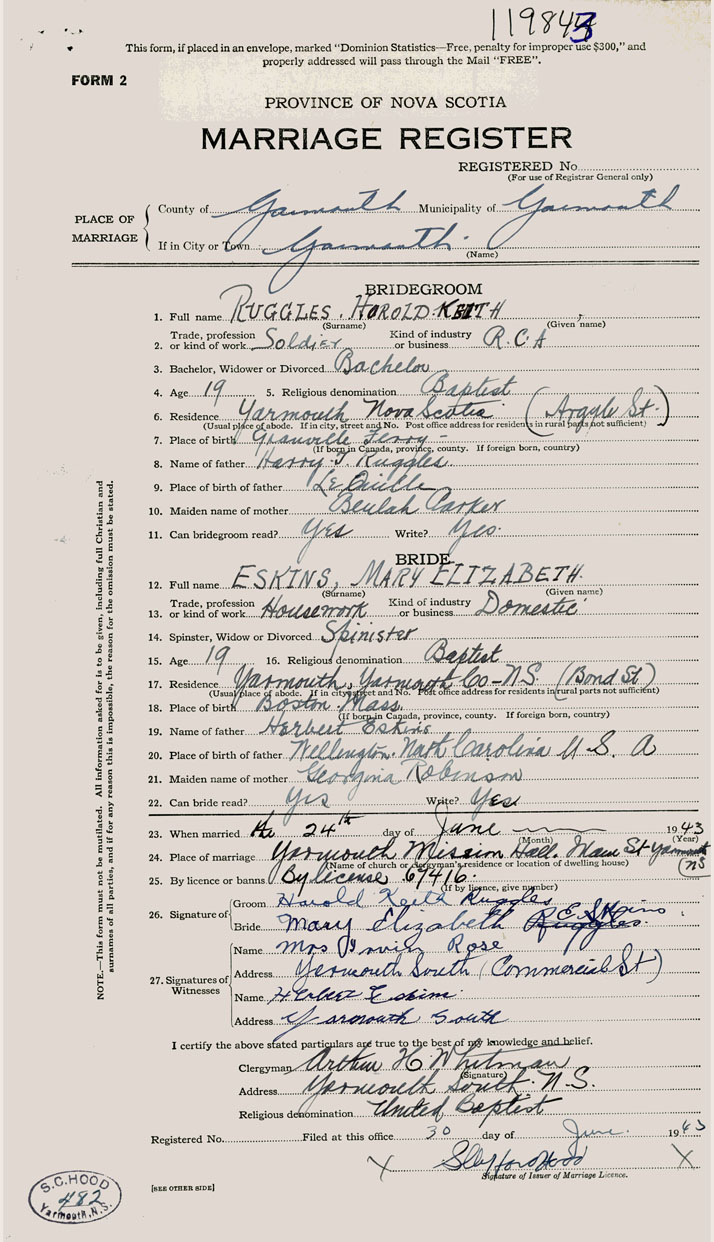 119843
This form, if placed in an envelope, marked "Dominion Statistics—Free, penalty for improper use $300," and
properly addressed will pass through the Mail "FREE".
FORM 2
PROVINCE OF NOVA SCOTIA
MARRIAGE REGISTER
REGISTERED No
(For use of Registrar General only)
PLACE OF MARRIAGE
County of Yarmouth Municipality of Yarmouth
If in City or Town Yarmouth
(Name)
BRIDEGROOM
1. Full name RUGGLES. HAROLD KEITH
(Surname) (Given name)
2. Trade, profession or kind of work Soldier Kind of industry or business R.C.A
3. Bachelor, Widower or Divorced Bachelor
4. Age 19 5. Religious denomination Baptist
6. Residence Yarmouth Nova Scotia (Argyle St.)
(Usual place of abode. If in city, street and No. Post office address for residents in rural parts not sufficient)
7. Place of birth Granville Ferry -
(If born in Canada, province, county. If foreign born, country)
8. Name of father Harry T. Ruggles.
9. Place of birth of father
10. Maiden name of mother Beulah Parker
11. Can bridegroom read? Yes Write? Yes.
BRIDE
12. Full name ESKINS, MARY ELIZABETH.
(Surname) (Given name)
13. Trade, profession or kind of work Housework Kind of industry or business Domestic
14. Spinster, Widow or Divorced Spinister
15. Age 19 16. Religious denomination Baptist
17. Residence Yarmouth, Yarmouth Co-N.S. (Bond St)
(Usual place of abode. If in city, street and No. Post office address for residents in rural parts not sufficient)
18. Place of birth Boston. Mass.
(If born in Canada, province, county. If foreign born, country)
19. Name of father Herbert Eskins
20. Place of birth of father Wellington. North Carolina U.S.A
21. Maiden name of mother Georgina Robinson
22. Can bride read? Yes Write? Yes
23. When married the 24th day of June 1943
(Month) (Year)
24. Place of marriage Yarmouth Mission Hall. Main St Yarmouth
(Name of church or clergyman's residence or location of dwelling house) (NS
25. By licence or banns By license 69416.
(If by licence, give number)
26. Signature of
Groom Harold Keith Ruggles
Bride Mary Elizabeth Eskins
27. Signatures of Witnesses
Name Mrs Irvin Rose
Address Yarmouth South (Commercial St)
Name Herbert Eskins
Address Yarmouth South
I certify the above stated particulars are true to the best of my knowledge and belief.
Clergyman Arthur H. Whitman
(Signature)
Address Yarmouth South N.S.
Religious denomination United Baptist
Registered No. Filed at this office 30 day of June. 1943
X X
Signature of Issuer of Marriage Licence.
[SEE OTHER SIDE]
S.C. HOOD
482
Yarmouth, N.S.
NOTE.—This form must not be mutilated. All information asked for is to be given, including full Christian and
surnames of all parties, and if for any reason this is impossible, the reason for the omission must be stated.